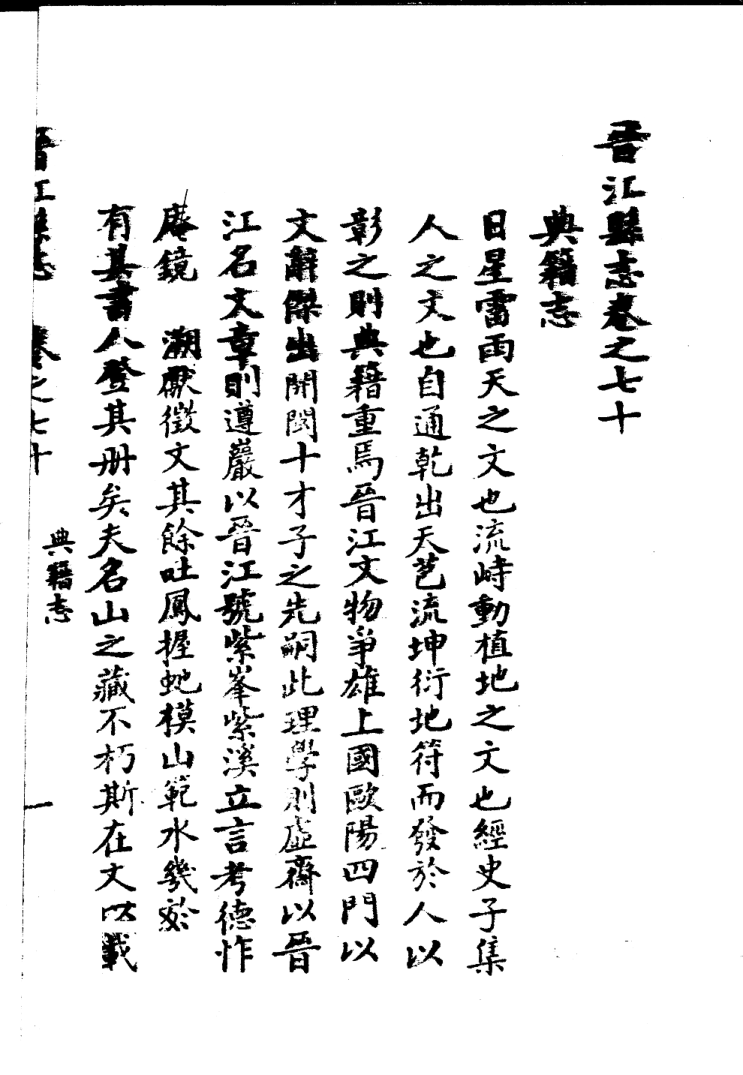 晉江縣志卷之七十
典籍志
日星雷雨天之文也流峙動植地之文也經史子集
人之文也自通乾出天苞流坤衍地符而發於人以
彰之則典籍重焉晉江文物爭雄上國歐陽四門以
文辭傑出開閩十才子之先嗣此理學則虛齋以晉
江名文章則遵巖以晉江號紫峯紫溪立言考德怍
庵鏡 溯獻徵文其餘吐鳳握虵模山範水幾於
有其書人登其册矣夫名山之藏不朽斯在文以載
晉江縣志 卷之七十 典籍志 一